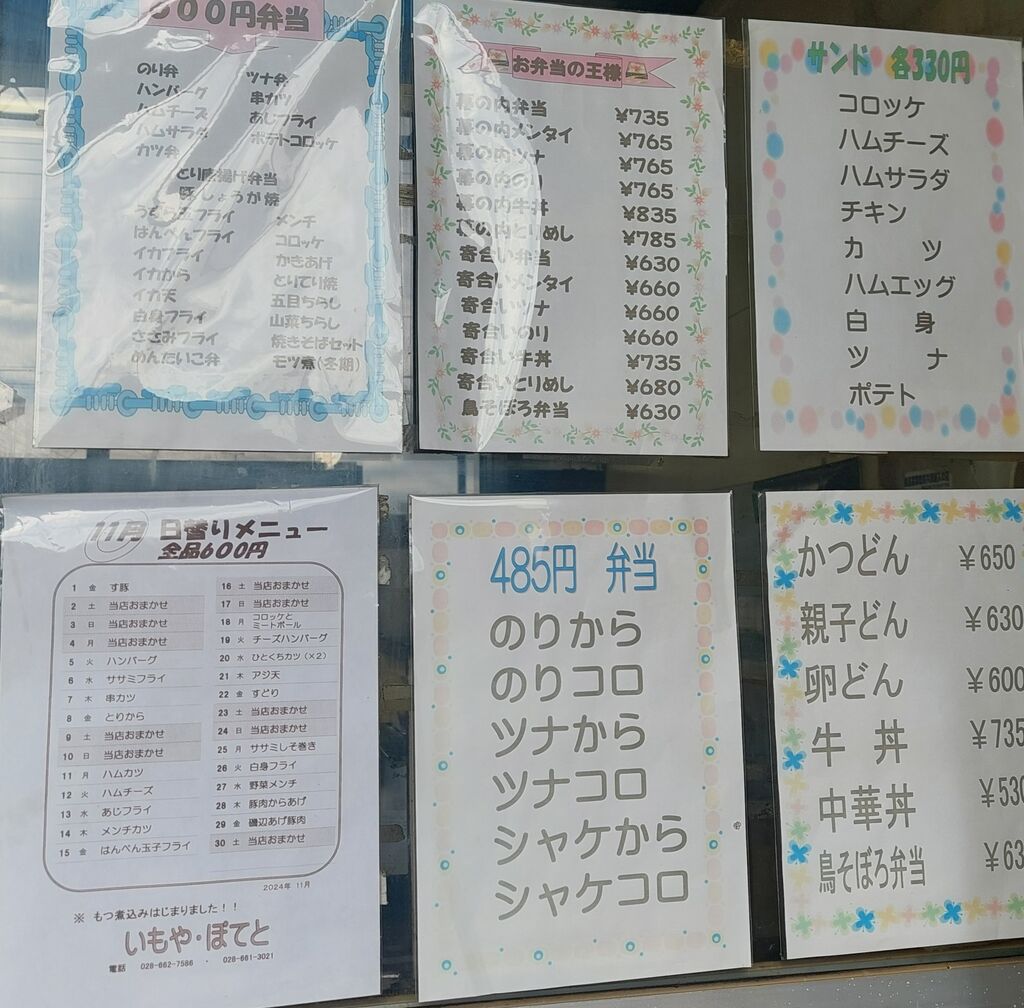 00円弁当
のり弁 ツナ弁
ハンバーグ 串カツ
ハムチーズ あじフライ
ハムサラダ ポテトコロッケ
カツ弁
とり唐揚げ弁当
豚しょうが焼
うずら玉フライ メンチ
はんぺんフライ コロッケ
イカフライ かきあげ
イカから とりてり焼
イカ天 五目ちらし
白身フライ 山菜ちらし
ささみフライ 焼きそばセット
めんたいこ弁 モツ煮(冬期)
お弁当の王様
幕の内弁当 ¥735
幕の内メンタイ ¥765
幕の内ツナ ¥765
幕の内のり ¥765
幕の内牛丼 ¥835
幕の内とりめし ¥785
寄合い弁当 ¥630
寄合いメンタイ ¥660
寄合いツナ ¥660
寄合いのり ¥660
寄合い牛丼 ¥735
寄合いとりめし ¥680
鳥そぼろ弁当 ¥630
サンド 各330円
コロッケ
ハムチーズ
ハムサラダ
チキン
カツ
ハムエッグ
白身
ツナ
ポテト
11月 日替りメニュー
全品600円
1 金 す豚
2 土 当店おまかせ
3 日 当店おまかせ
4 月 当店おまかせ
5 火 ハンバーグ
6 水 ササミフライ
7 木 串カツ
8 金 とりから
9 土 当店おまかせ
10 日 当店おまかせ
11 月 ハムカツ
12 火 ハムチーズ
13 水 あじフライ
14 木 メンチカツ
15 金 はんぺん玉子フライ
16 土 当店おまかせ
17 日 当店おまかせ
18 月 コロッケと
ミートボール
19 火 チーズハンバーグ
20 水 ひとくちカツ(×2)
21 木 アジ天
22 金 すどり
23 土 当店おまかせ
24 日 当店おまかせ
25 月 ササミしそ巻き
26 火 白身フライ
27 水 野菜メンチ
28 木 豚肉からあげ
29 金 磯辺あげ豚肉
30 土 当店おまかせ
2024年 11月
※ もつ煮込みはじまりました!!
いもや・ぽてと
電話 028-662-7586 ・ 028-661-3021
485円 弁当
のりから
のりコロ
ツナから
ツナコロ
シャケから
シャケコロ
かつどん ¥650
親子どん ¥630
卵どん ¥600
牛丼 ¥735
中華丼 ¥530
鳥そぼろ弁当 ¥63